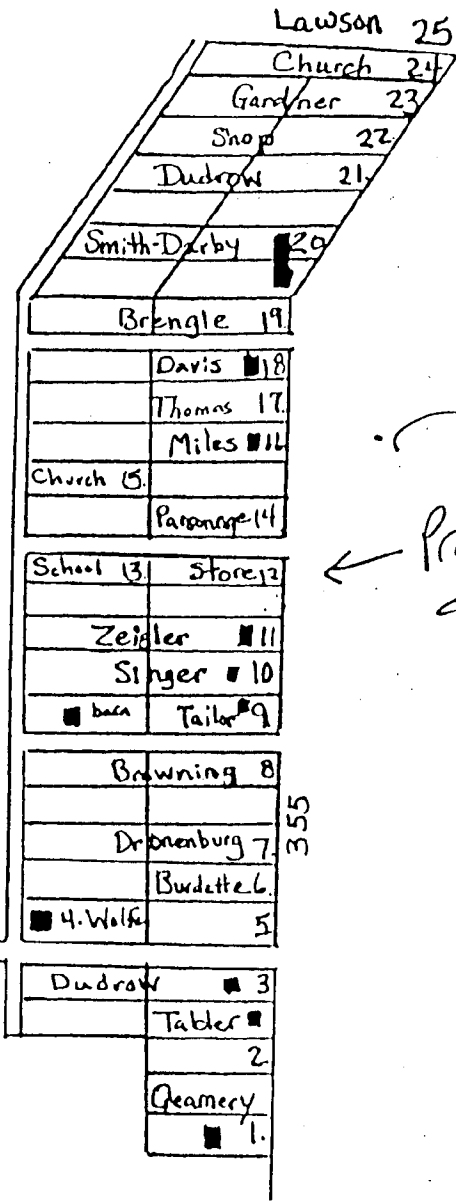 Lawson 25
Church 24
Gardner 23
Shop 22.
Dudrow 21.
Smith-Darby 20
Brengle 19
Davis 18
Thomas 17.
Miles 16
Church 15.
Parsonage 14
School 13. Store 12
Zeigler 11
Singer 10
barn Tailor 9
Browning 8
355
Dronenburg 7.
Burdette 6.
4. Wolfe 5
Dudrow 3
Tabler
2
Creamery
1.